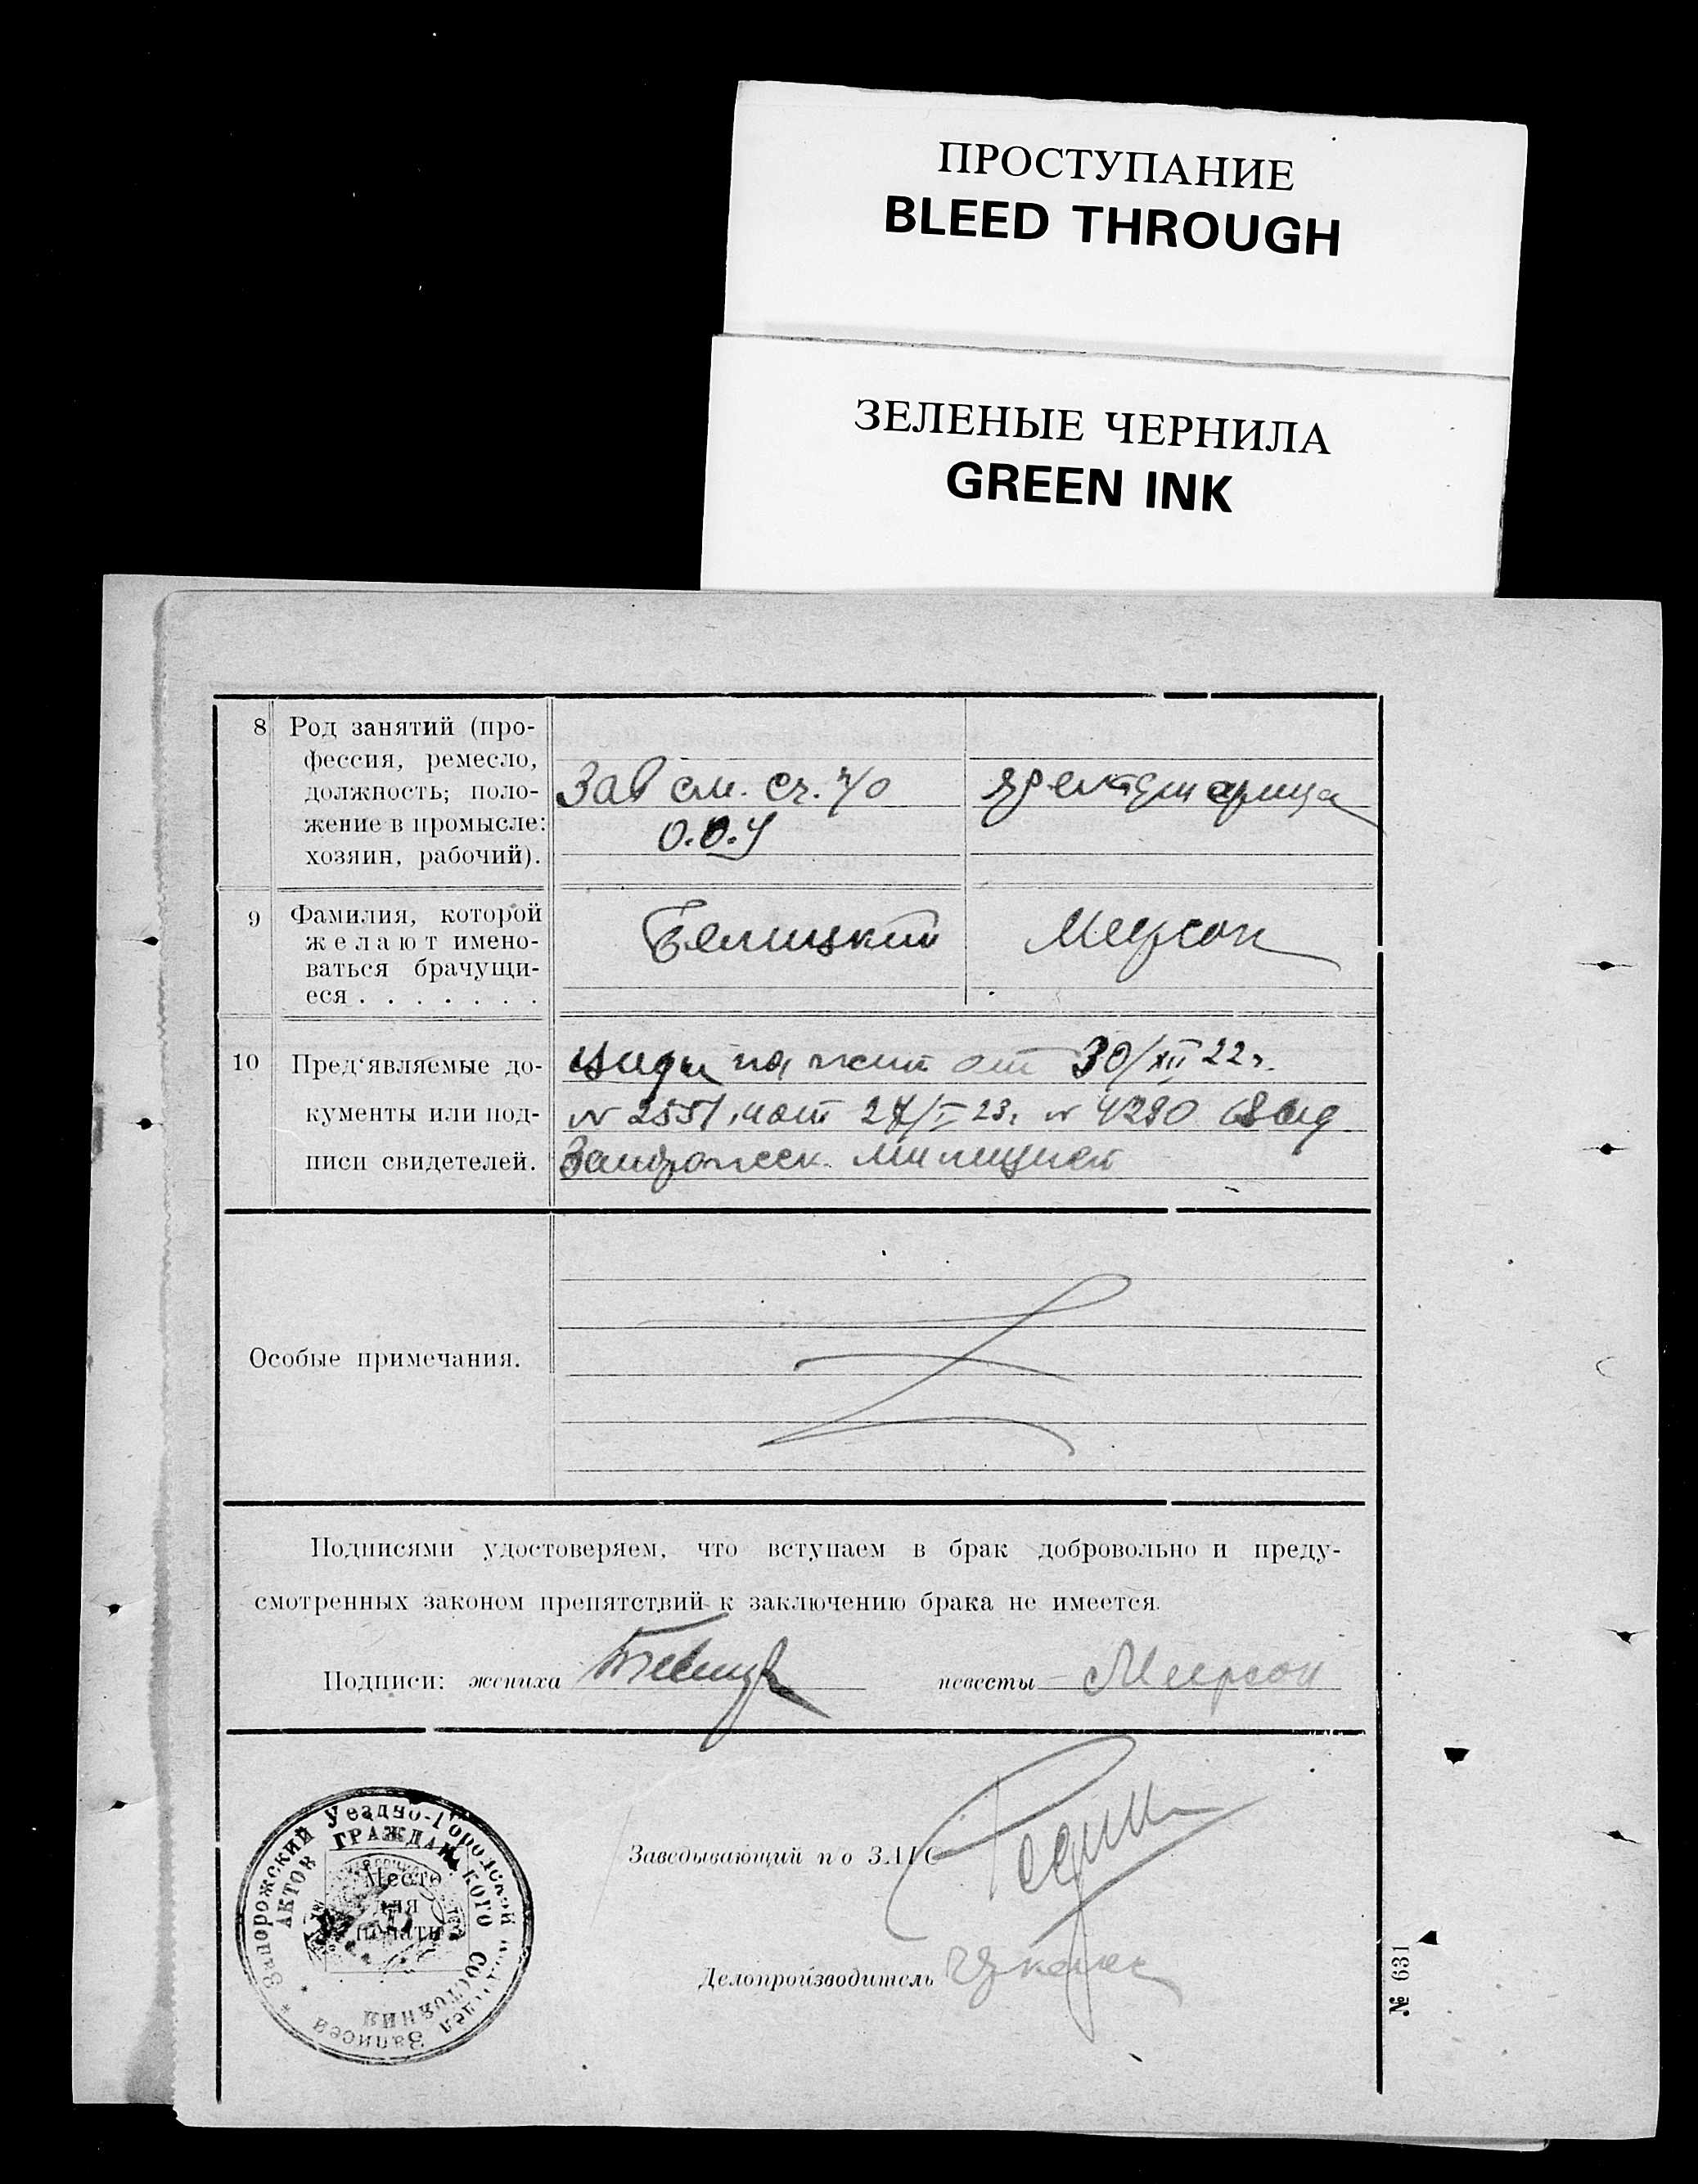 ПРОСТУПАНИЕ
BLEED THROUGH
ЗЕЛЕНЫЕ ЧЕРНИЛА
GREEN INK
8 Род занятий (про-
фессия, ремесло,
должность; поло-
жение в промысле:
хозяин, рабочий).
Зав см. сч. ч/о
О.О.У
9 Фамилия, которой
желают имено-
ваться брачущи-
еся . . . . . . .
Белицкий Меерсон
10 Пред‘являемые до-
кументы или под-
писи свидетелей.
виды на жит от 30/XII 22 г.
№ 2551 и от 27/I 23 г. № 4290 выд
Запорожск. милицией
Особые примечания.
Подписями удостоверяем, что вступаем в брак добровольно и преду-
смотренных законом препятствий к заключению брака не имеется.
Подписи: жениха невесты Меерсон
Заведывающий по ЗАГС
Делопроизводитель
Запорожский Уездно-Городской Отдел Записей
АКТОВ ГРАЖДАНСКОГО СОСТОЯНИЯ
Место
для
печати
№ 631